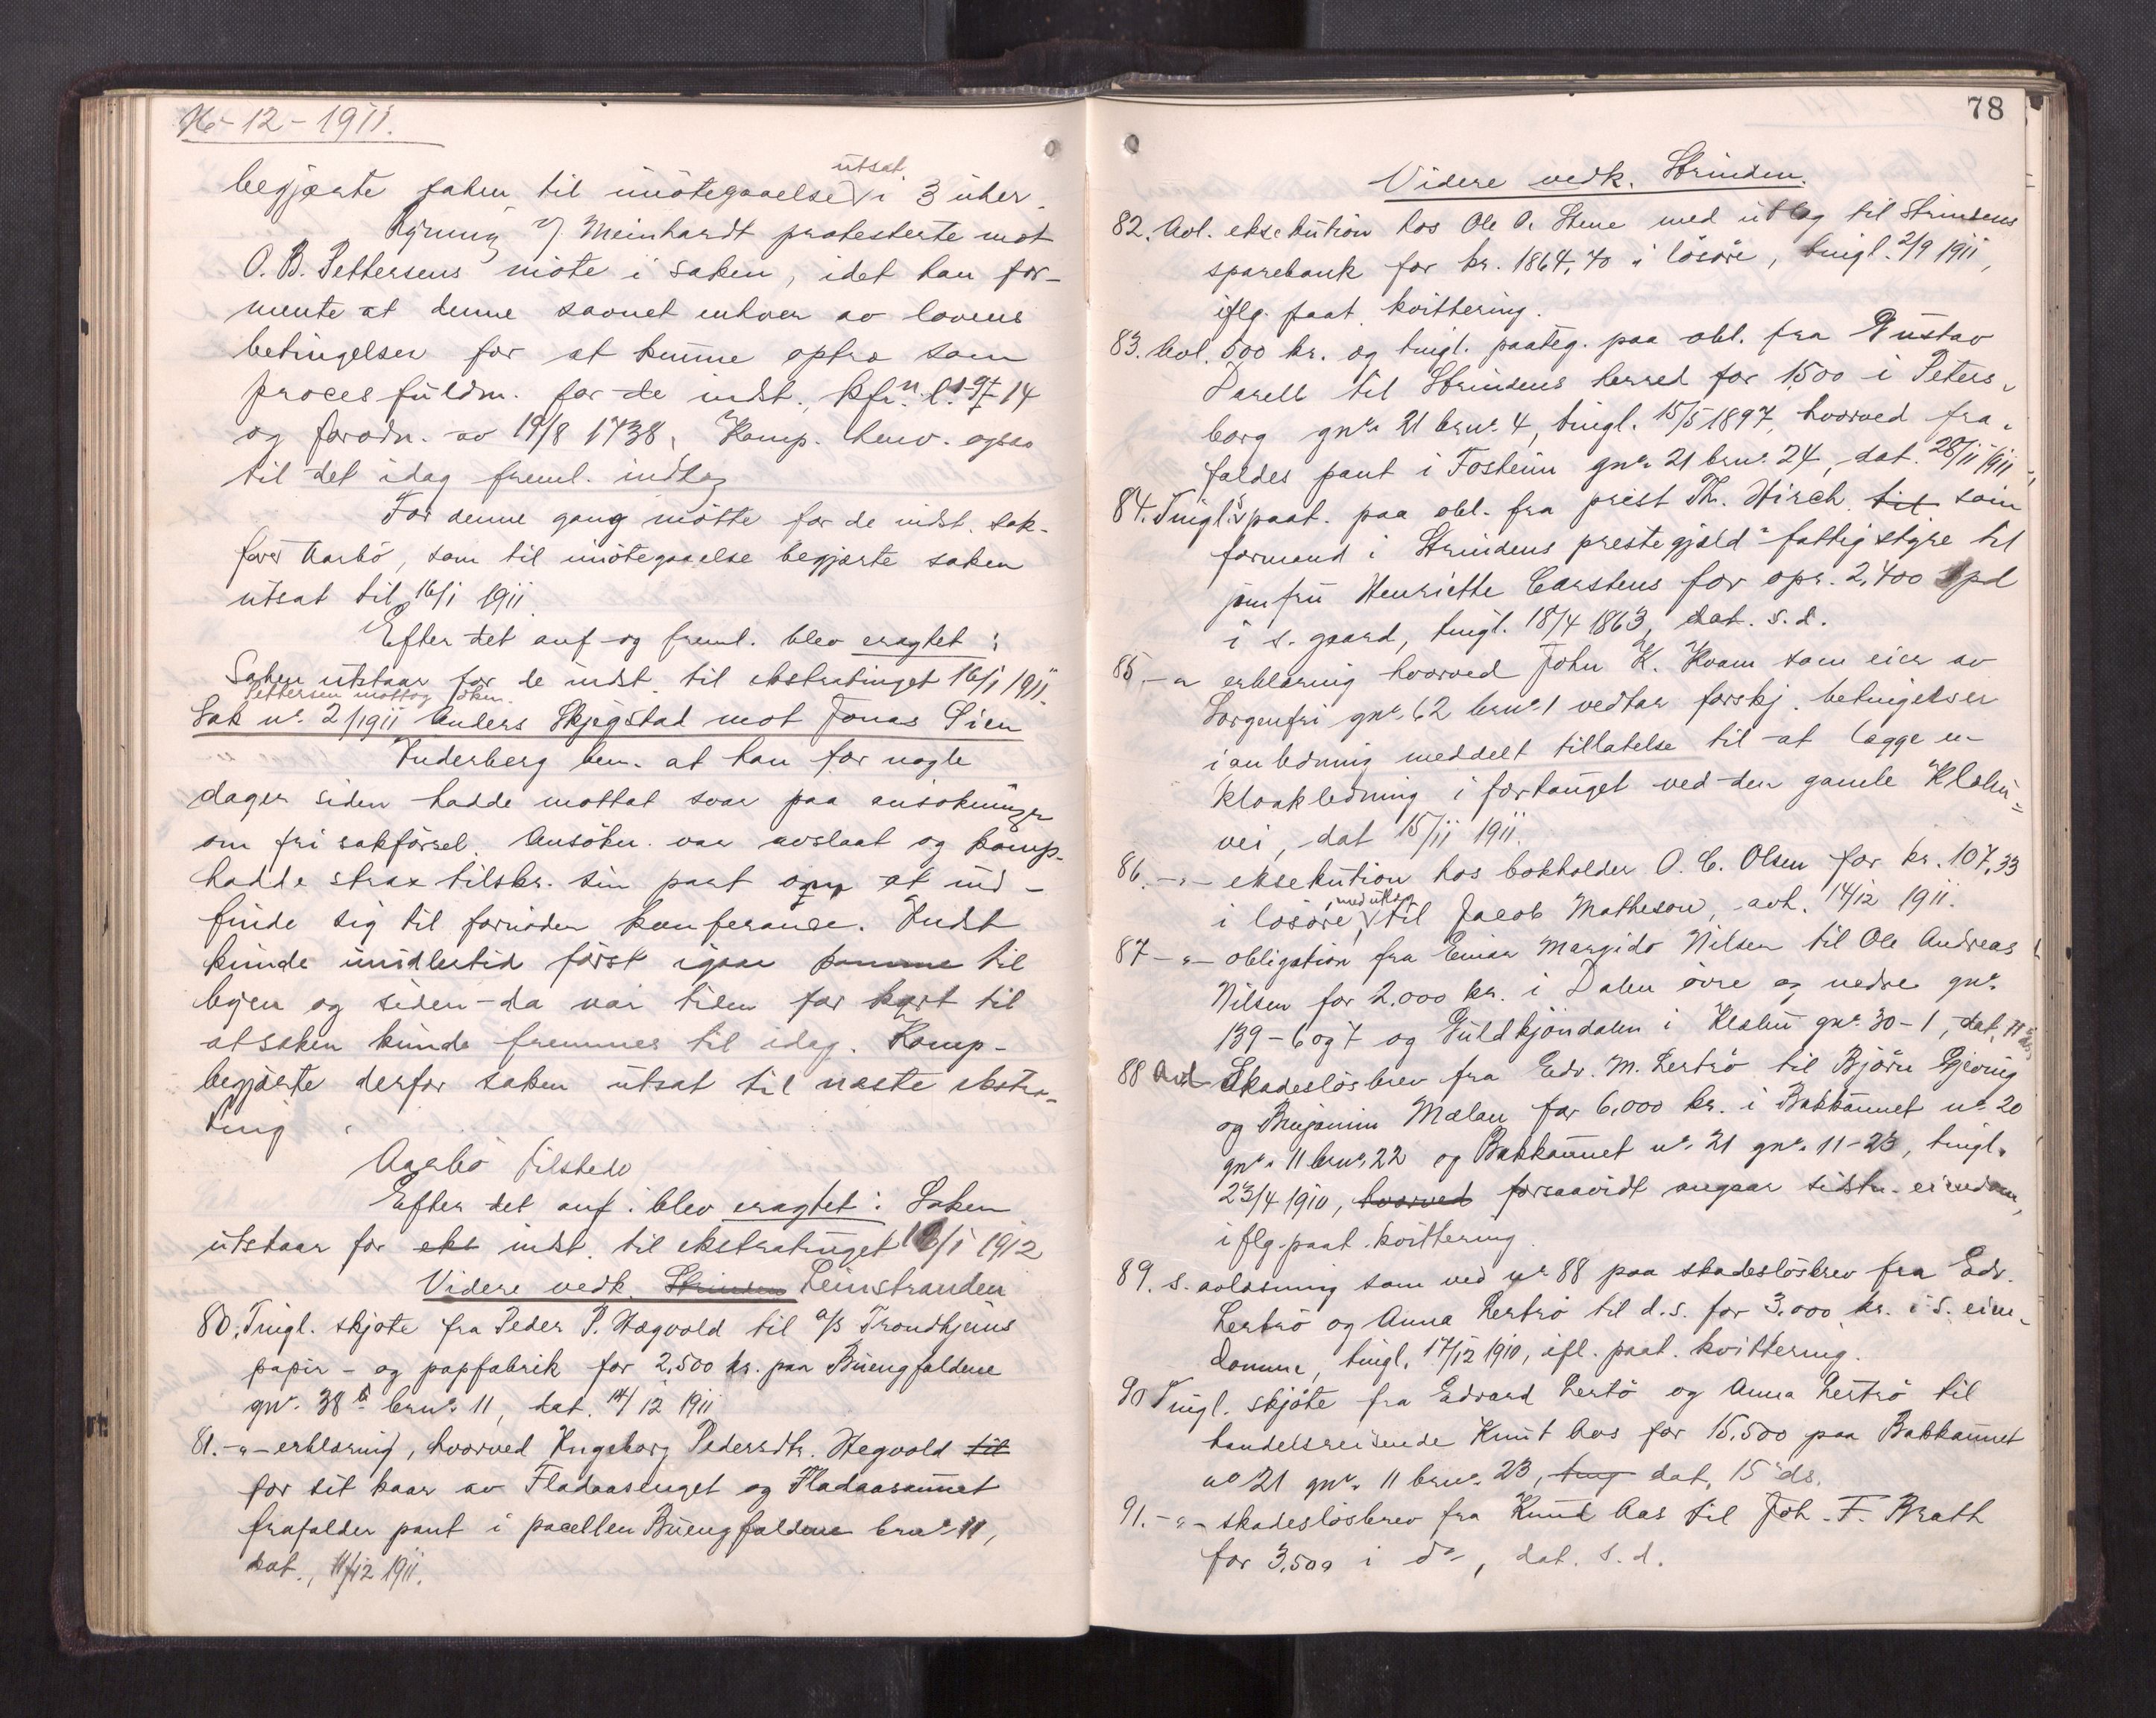 16-12-1911.
utsat
begjærte saken til imøtegaaelse i 3 uker.
Rynning v/ Meinhardt protesterte mot
O. B. Pettersens møte i saken, idet han for-
mente at denne savnet enhver av lovens
betingelser for at kunne optræ som
procesfuldm. for de indst. kfr. 1-9-14
og forordn. av 19/8 1738. Komp. henv. ogsaa
til det idag freml. indlæg
For denne gang møtte for de indst. sak-
fører Aarbø, som til imøtegaaelse begjærte saken
utsat til 16/1 1911.
Efter det anf. og freml. blev eragtet:
Saken utstaar for de indst. til ekstratinget 16/1 1911.
Pettersen mottog saken.
Sak nr. 2/1911 Anders Skjegstad mot Jonas Lien
Inderberg bem. at han for nogle
dager siden hadde mottat svar paa ansøkninger
om fri sakførsel. Ansøkn. var avslaat og komp.
hadde strax tilskr. sin part om at ind-
finde sig til fornøden konferanse. Indst
kunde imidlertid først igaar komme til
byen og siden da var tiden for kort til
at saken kunde fremmes til idag. Komp.
begjærte derfor saken utsat til næste ekstra-
ting.
Aarbø tilstede
Efter det anf. blev eragtet: Saken
utstaar for eks indst. til ekstratinget 16/1 1912
Videre vedk. Strinden Leinstranden
80. Tingl. skjøte fra Peder P. Hegvold til A/S Trondhjems
papir- og papfabrik for 2,500 kr. paa Buengfaldene
gnr. 38 b brnr. 11, dat. 14/12 1911
81. -"- erklæring, hvorved Ingeborg Pedersdtr. Hegvold til
for sit kaar av Fladaasenget og Fladaasaunet
frafalder pant i parcellen Buengfaldene brnr 11,
dat., 14/12 1911.
78
Videre vedk. Strinden.
82. Avl. eksekution hos Ole O. Stene med utlæg til Strindens
sparebank for kr. 1864,70 i løsøre, tingl. 2/9 1911,
iflg. paat. kvittering.
83. Avl. 500 kr. og tingl. paateg. paa obl. fra Gustav
Darell til Strindens herred for 1,500 i Peters-
borg gnr. 21 brnr. 4, tingl. 15/5 1897, hvorved fra-
faldes pant i Fosheim gnr. 21 brnr. 24, dat. 28/11 1911,
84. Tingl. paat. paa obl. fra prest Th. Hirsch til som
formand i Strindens prestegjeld fattigstyre til
jomfru Henriette Carstens for opr. 2,400 Spd
i s. gaard, tingl. 18/4 1863, dat. s. d.
85 -"- erklæring hvorved John K. Kvam som eier av
Sorgenfri gnr. 62 brnr. 1 vedtar forskj. betingelser
i anledning meddelt tillatelse til at lægge en
kloakledning i fortauget ved den gamle Klæbu-
vei, dat 15/11 1911.
86. -"- eksekution hos bokholder O. C. Olsen for kr. 107,33
med utlæg
i løsøre, til Jacob Matheson, avh. 14/12 1911.
87 -"- obligation fra Einar Margido Nilsen til Ole Andreas
Nilsen for 2.000 kr. i Dalen øvre og nedre gnr.
139 - 6 og 7 og Guldkjøndalen i Klæbu gnr. 30-1, dat.
88 Avl Skadesløsbrev fra Edv. M. Lertrø til Bjørn Gjeving
og Benjamin Mælan for 6.000 kr. i Bakkaunet nr. 20
gnr. 11 brnr. 22 og Bakkaunet nr. 21 gnr. 11-23, tingl.
23/4 1910, hvorved forsaavidt angaar sidstn. eiendom,
iflg. paat. kvittering.
89. s. avlæsning som ved nr 88 paa skadesløsbrev fra Edv.
Lertrø og Anna Lertrø til d. s. for 3.000 kr. i s. eien-
domme, tingl. 17/12 1910, ifl. paat. kvittering.
90 Tingl. skjøte fra Edvard Lertrø og Anna Lertrø til
handelsreisende Knut Aas for 15.500 paa Bakkaunet
no 21 gnr. 11 brnr. 23, ting dat, 15 ds.
91. -"- skadesløsbrev fra Knud Aas til Joh. F. Brath
for 3.500 i do, dat. s. d.